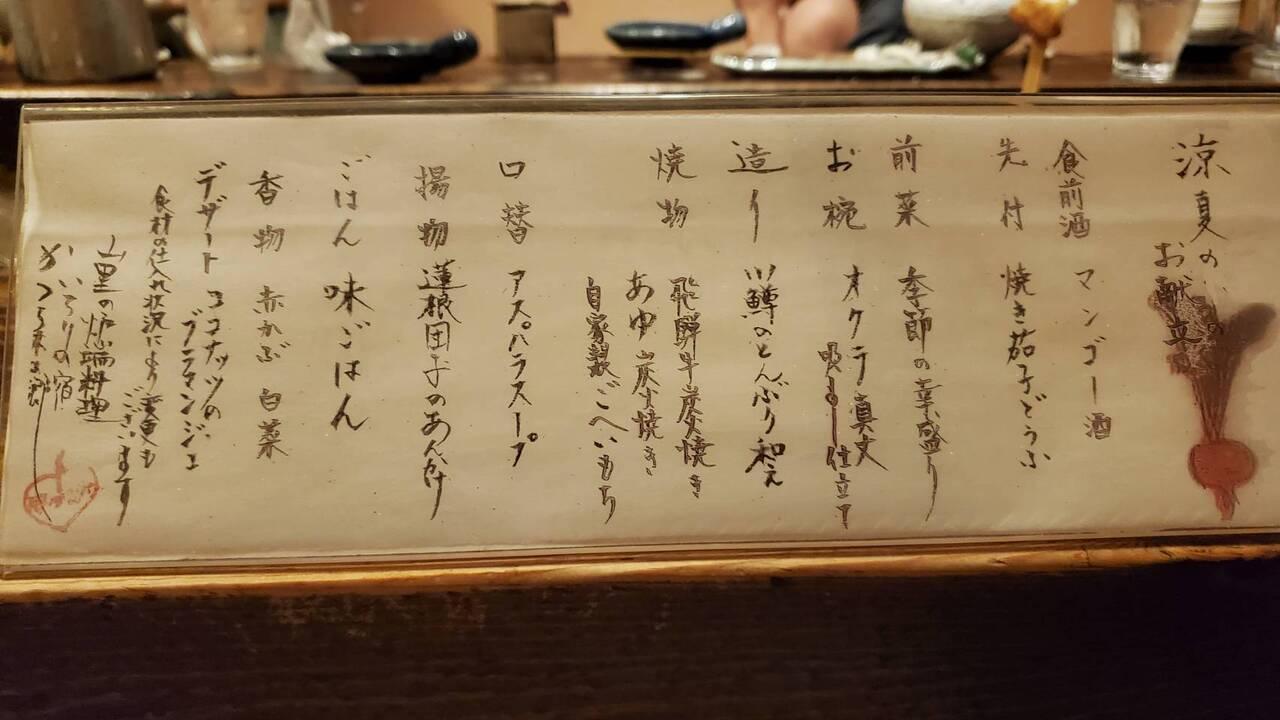 涼夏の
お献立
食前酒 マンゴー酒
先付 焼き茄子どうふ
前菜 季節の幸盛り
お椀 オクラ真丈
吸もの仕立て
造り 川鱒のとんぶり和え
焼物 飛騨牛炭焼き
あゆ炭火焼き
自家製ごへいもち
口替 アスパラスープ
揚物 蓮根団子のあんかけ
ごはん 味ごはん
香物 赤かぶ 白菜
デザート ココナッツの
ブランマンジェ
食材の仕入れ状況により変更も
ございます
山里の炉端料理
いろりの宿
かつら木の郷